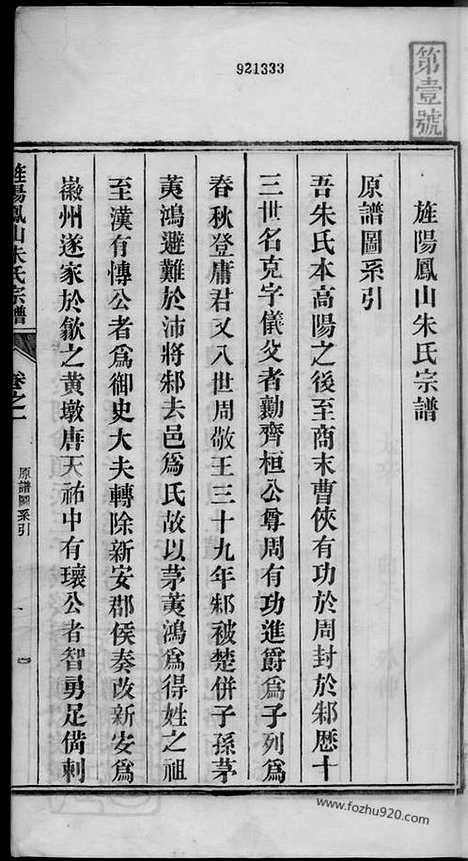 921333
第壹號
旌陽鳳山朱氏宗譜
原譜圖系引
吾朱氏本高陽之後至商末曹俠有功於周封於邾歷十
三世名克字儀父者勷齊桓公尊周有功進爵爲子列爲
春秋登庸君又八世周敬王三十九年邾被楚併子孫茅
荑鴻避難於沛將邾去邑爲氏故以茅荑鴻爲得姓之祖
至漢有愽公者爲御史大夫轉除新安郡侯奏改新安爲
徽州遂家於歙之黄墩唐天祐中有瓌公者智勇足僃刺
旌陽鳳山朱氏宗譜
卷之一
原譜圖系引
一
www.fozhu920.com